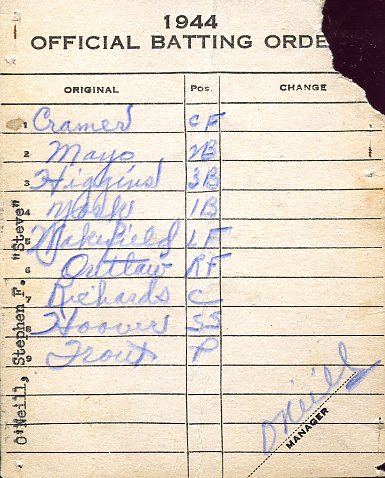 1944
OFFICIAL BATTING ORDE
ORIGINAL Pos. CHANGE
1 Cramer CF
2 Mayo 2B
3 Higgins 3B
4 York 1B
5 Wakefield LF
6 Outlaw RF
7 Richards C
8 Hoover SS
9 Trout P
O'Neill, Stephen F. "Steve"
O'Neill
MANAGER